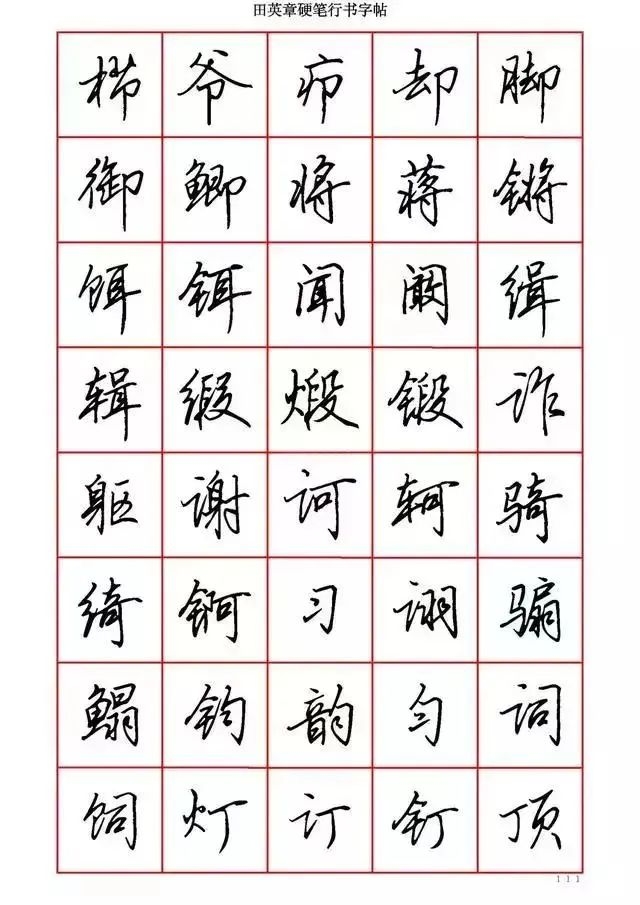 田英章硬笔行书字帖
栉 爷 疖 却 脚
御 鲫 将 蒋 锵
饵 铒 闻 阚 缉
辑 缎 煅 锻 诈
躯 谢 诃 轲 骑
绮 锕 习 诩 骟
鳎 钧 韵 匀 词
饲 灯 订 钉 顶
111